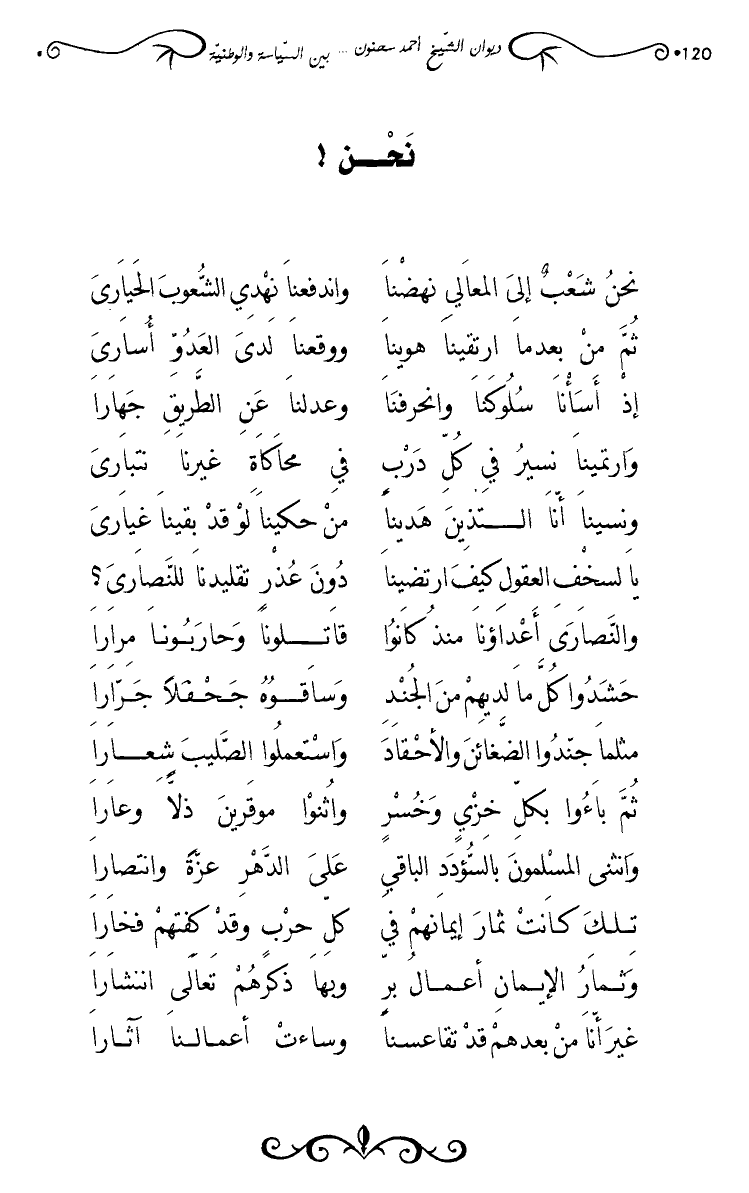 120 ديوان الشّيخ أحمد سحنون ... بين السّياسة والوطنيّة
نَحْـــن !
نحنُ شَعْبٌ إلىَ المعَالي نهضْناَ واندفعناَ نهْدي الشُّعوبَ الحَيارىَ
ثُمَّ منْ بعدماَ ارتقيناَ هويناَ ووقعناَ لدىَ العَدُوّ أُسارىَ
إذْ أَسَأْناَ سُلُوكَناَ وانحرفنَا وعدلناَ عَنِ الطَّريقِ جَهاراَ
وَارتميناَ نسيرُ فيِ كُلّ دَرْبٍ فيِ محاَكَاةِ غيرناَ نتبارىَ
ونسيناَ أنَّا الـــتّذينَ هَديناَ منْ حكيناَ لوْ قدْ بقيناَ غيارىَ
ياَ لسخْف العقول كيفَ ارتضيناَ دُونَ عُذْرٍ تقليدناَ للنَّصارىَ؟
والنَّصارَى أَعْداؤناَ منذُ كانُوا قاتـــلوناَ وَحارَبُونـاَ مراراَ
حَشَدُوا كُلَّ ماَ لديهمْ منَ الجُنْد وَساقـــوُهُ جَـحْـفَلاً جَـرّاراَ
مثلماَ جنّدُوا الضّغائنَ والأحْقادَ وَاسْتعملُوا الصَّليبَ شِعـــاراَ
ثُمَّ باَءُوا بكلّ خزْيٍ وَخُسْرٍ واثْنوْا موقرينَ ذلاَّ وعاراَ
وَانثنى المسْلمونَ بالسُّؤدَد الباقي عَلىَ الدَّهْرِ عزَّةً وانتصاراَ
تـلـكَ كـانَتْ ثمارَ إيمانهمْ فيِ كلّ حرْبٍ وقدْ كفتهمْ فخاراَ
وَثـمارُ الإيـمـانِ أعـمـال برٍّ وبهاَ ذكرُهُمْ تعالَى انتشاراَ
غيرَ أنَّاَ منْ بعدهمْ قدْ تقاعسـناَ وساءتْ أعمـالـنـاَ آثـاراَ